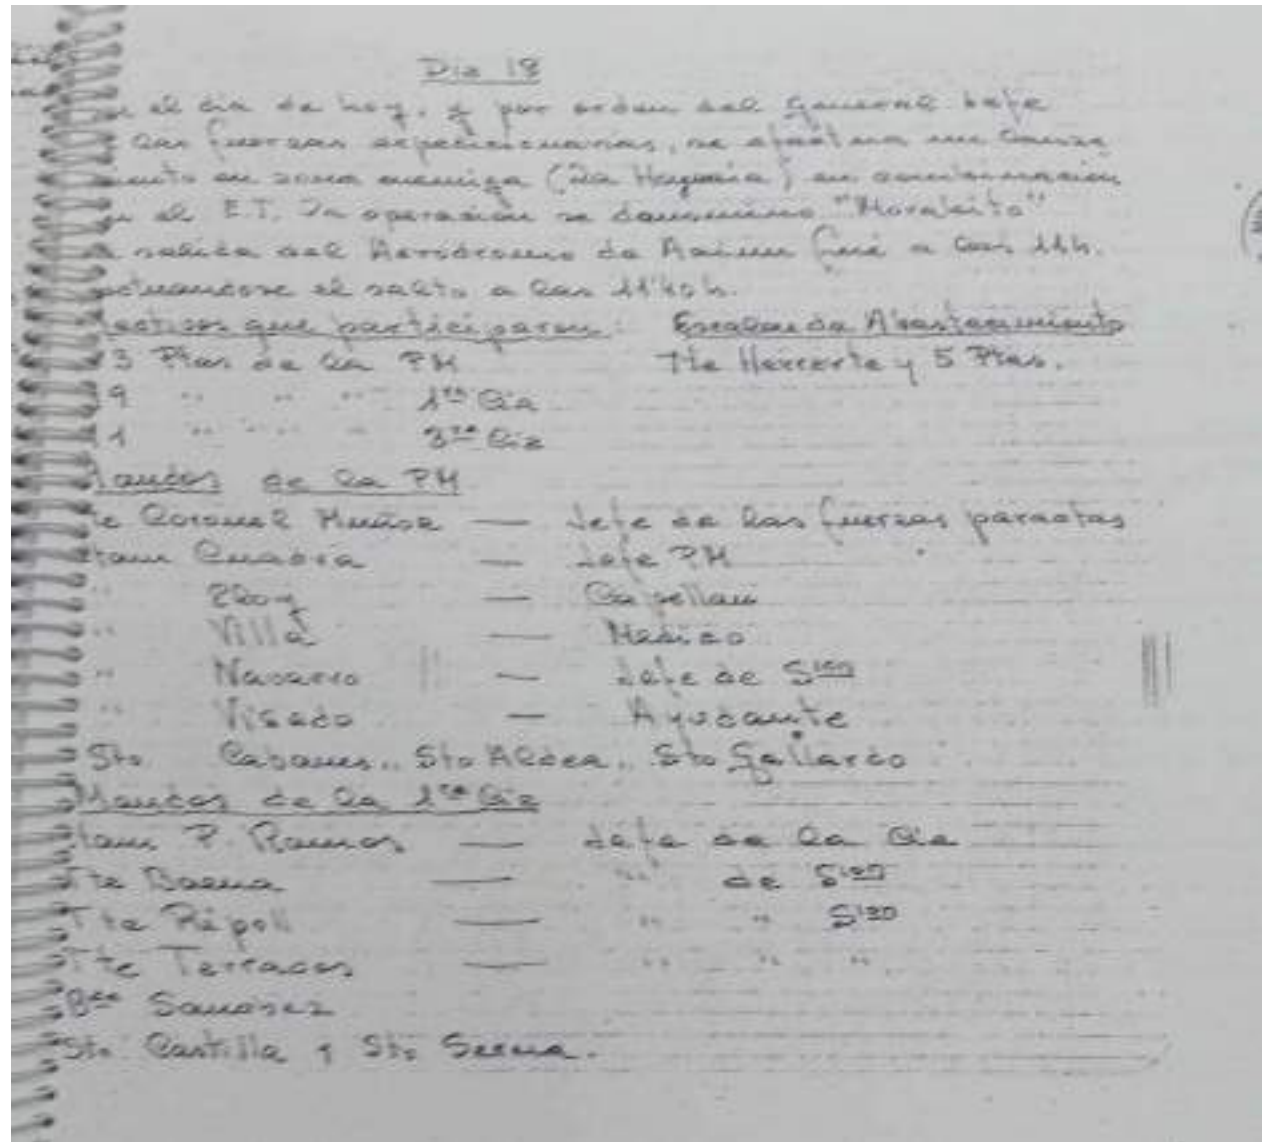 Dia 18
el dia de hoy, y por orden del General Jefe
las fuerzas expedicionarias, se efectua un lanza
miento en zona enemiga (La Hagunia) en combinación
el E.T. La operación se denomino "Moralito"
salida del Aerodromo de Aaiun fué a las 11h.
efectuandose el salto a las 11'40 h.
que participaron: Escalon de Abastecimiento
3 Ptas de la PM Tte Herrerte y 5 Ptas.
9 " " " 1ra Cia
1 " " " 3ra Cia
Mandos de la PM
Te Coronel Muñoz — Jefe de las fuerzas paracas
Cuadra — Jefe PM
" Eloy — Capellan
" Villa — Medico
" Navarro — Jefe de Sion
" Visedo — Ayudante
Sto Cabanes, Sto Aldea, Sto Gallardo
Mandos de la 1ra Cia
P. Ramos — Jefe de la Cia
Tte Baena — " de Sion
Tte Ripoll — " " Sion
Tte Terrados — " " "
Bda Sanchez
Sto Castilla y Sto Serna.